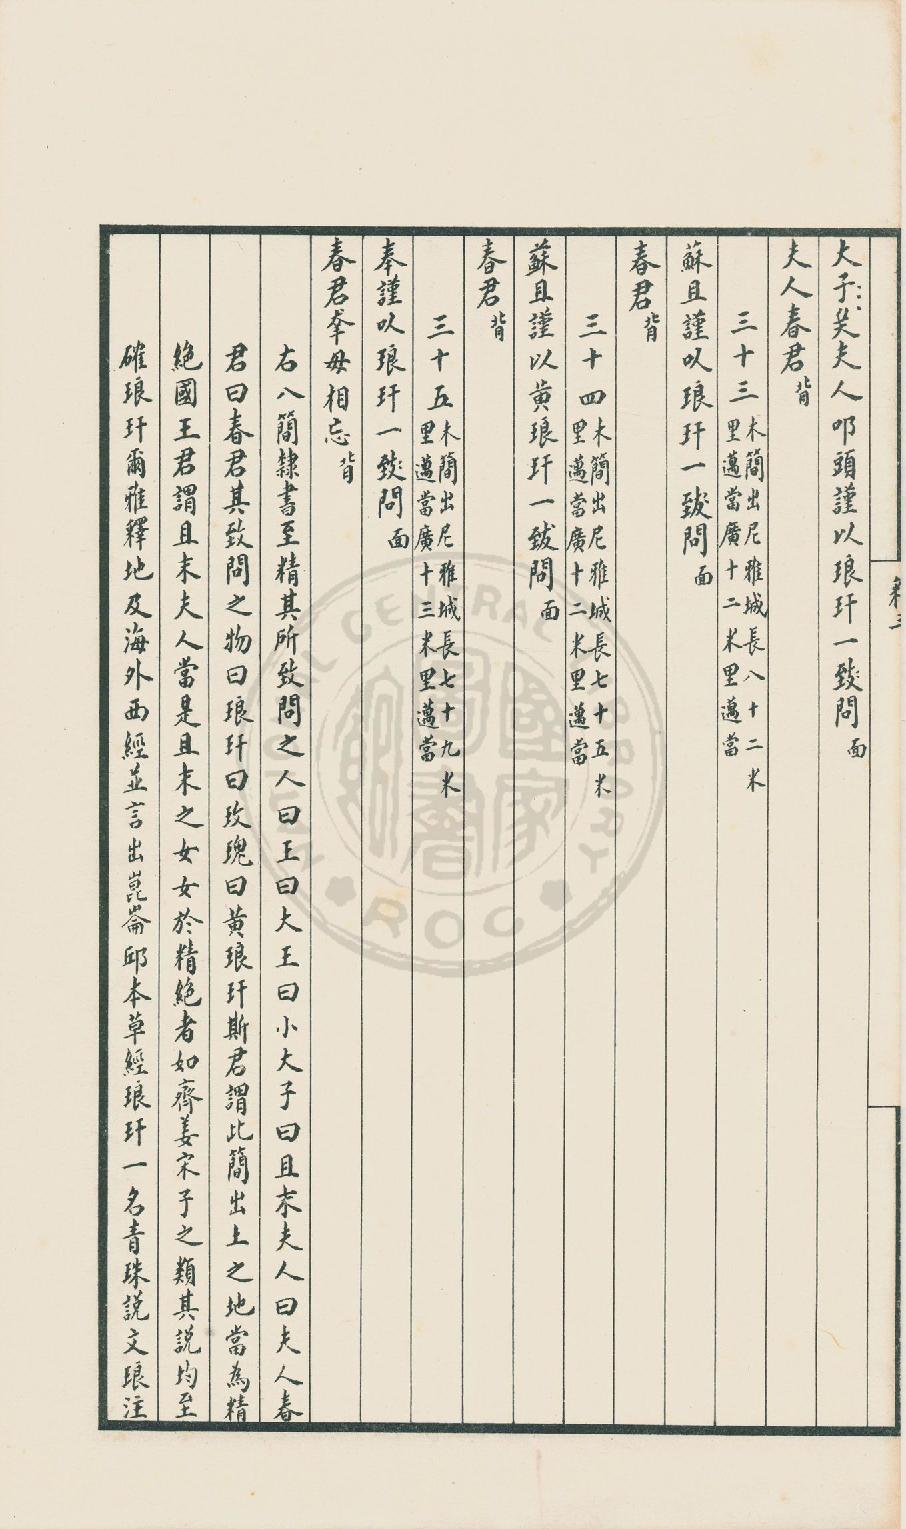 大子美夫人叩頭謹以琅玕一致問面
夫人春君背
三十三木簡出尼雅城長八十二米里邁當廣十二米里邁當
蘇且謹以琅玕一致問面
春君背
三十四木簡出尼雅城長七十五米里邁當廣十二米里邁當
蘇且謹以黄琅玕一致問面
春君背
三十五木簡出尼雅城長七十九米里邁當廣十三米里邁當
奉謹以琅玕一致問面
春君幸毋相忘背
右八簡隸書至精其所致問之人曰王曰大王曰小大子曰且末夫人曰夫人春
君曰春君其致問之物曰琅玕曰玫瑰曰黄琅玕斯君謂此簡出土之地當為精
絶國王君謂且末夫人當是且末之女女於精絶者如齊姜宋子之類其説均至
確琅玕爾雅釋地及海外西經並言出崑崙邱本草經琅玕一名青珠説文琅注
NATIONAL CENTRAL LIBRARY
ROC
國家圖書館